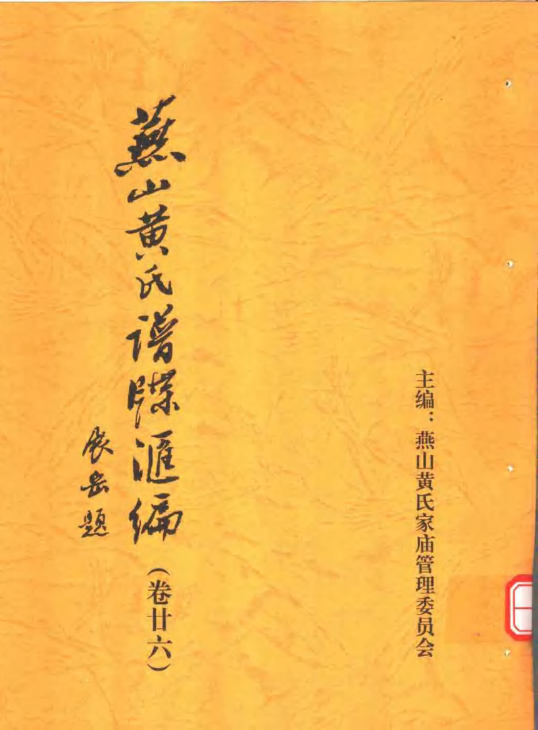 主编：燕山黄氏家庙管理委员会
燕山黄氏谱牒滙编
（卷廿六）
展岳题